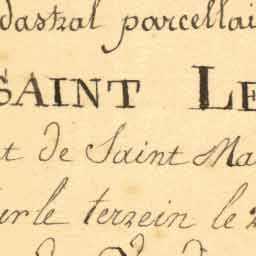 dastral parcellai
SAINT LE
t de Saint Ma
sur le terrein le 2